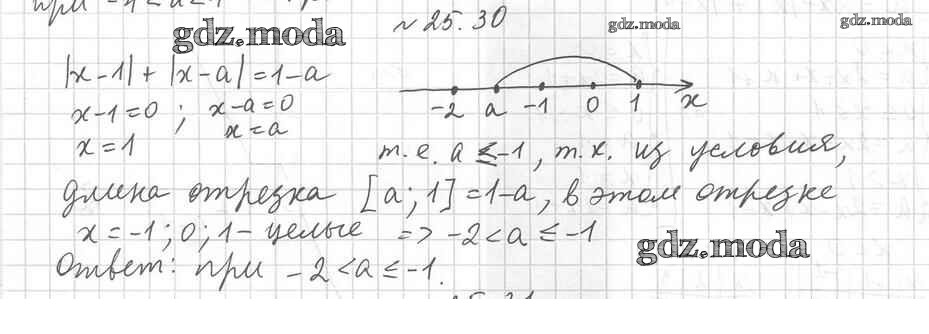 при -1<a<1
№ 25.30
gdz.moda
gdz.moda
gdz.moda
|x-1| + |x-a| = 1-a
x-1=0 ; x-a=0
x=1 x=a
-2 a -1 0 1 x
т.е. a ≤ -1, т.к. из условия,
длина отрезка [a; 1] = 1-a, в этом отрезке
x=-1; 0; 1 - целые => -2<a≤-1
gdz.moda
Ответ: при -2<a≤-1.